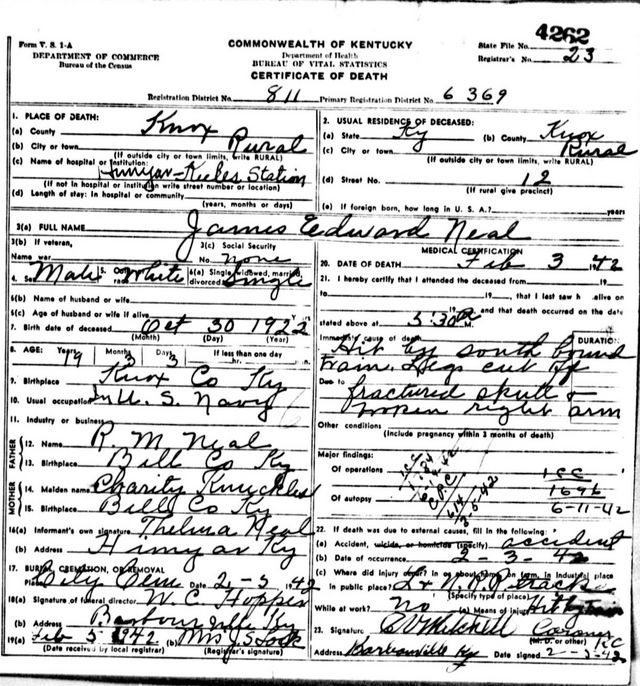 4262
Form V. S. 1-A
COMMONWEALTH OF KENTUCKY
State File No.
DEPARTMENT OF COMMERCE
Department of Health
Bureau of the Census
BUREAU OF VITAL STATISTICS
Registrar's No. 23
CERTIFICATE OF DEATH
Registration District No. 811 Primary Registration District No. 6369
1. PLACE OF DEATH:
(a) County Knox
(b) City or town Rural
(If outside city or town limits, write RURAL)
(c) Name of hospital or institution:
Station
(If not in hospital or institution write street number or location)
(d) Length of stay: In hospital or community
(years, months or days)
2. USUAL RESIDENCE OF DECEASED:
(a) State Ky (b) County Knox
(c) City or town Rural
(If outside city or town limits, write RURAL)
(d) Street No. 12
(If rural give precinct)
(e) If foreign born, how long in U. S. A.? years
3(a) FULL NAME James Edward Neal
3(b) If veteran, 3(c) Social Security
Name war No. None
4. Sex Male 5. Color White 6(a) Single, widowed, married, divorced Single
6(b) Name of husband or wife
6(c) Age of husband or wife if alive
7. Birth date of deceased Oct 30 1922
(Month) (Day) (Year)
8. AGE: Years 19 Months 3 Days 3 If less than one day
hr. min.
9. Birthplace Knox Co Ky
10. Usual occupation In U. S. Navy
11. Industry or business
FATHER
12. Name R. M. Neal
13. Birthplace Bell Co Ky
MOTHER
14. Maiden name Charity Knuckles
15. Birthplace Bell Co Ky
16(a) Informant's own signature Thelma Neal
(b) Address Himyar Ky
17. BURIAL, CREMATION, OR REMOVAL
Place Date 2-5 1942
18(a) Signature of funeral director W. C. Hopper
(b) Address Barbourville Ky
19(a) Feb 5 1942 (b) Mrs J S Lock
(Date received by local registrar) (Registrar's signature)
MEDICAL CERTIFICATION
20. DATE OF DEATH Feb 3 1942
21. I hereby certify that I attended the deceased from 19
to 19, that I last saw h alive on
19 and that death occurred on the date
stated above at 5:30 M.
Immediate cause of death DURATION
Hit by south bound
train. Legs cut off
Due to fractured skull &
broken right arm
Other conditions
(Include pregnancy within 3 months of death)
Major findings:
Of operations
ICC
Of autopsy 169b
6-11-42
22. If death was due to external causes, fill in the following:
(a) Accident, suicide, or homicide (specify) accident
(b) Date of occurrence 2-3-42
(c) Where did injury occur? In or about home, on farm, in industrial place
in public place? L & N RR tracks
(Specify type of place)
While at work? No (e) Means of injury Hit by train
23. Signature C V Mitchell Coroner
(M. D. or other) KC
Address Barbourville Ky Date signed 2-3-42